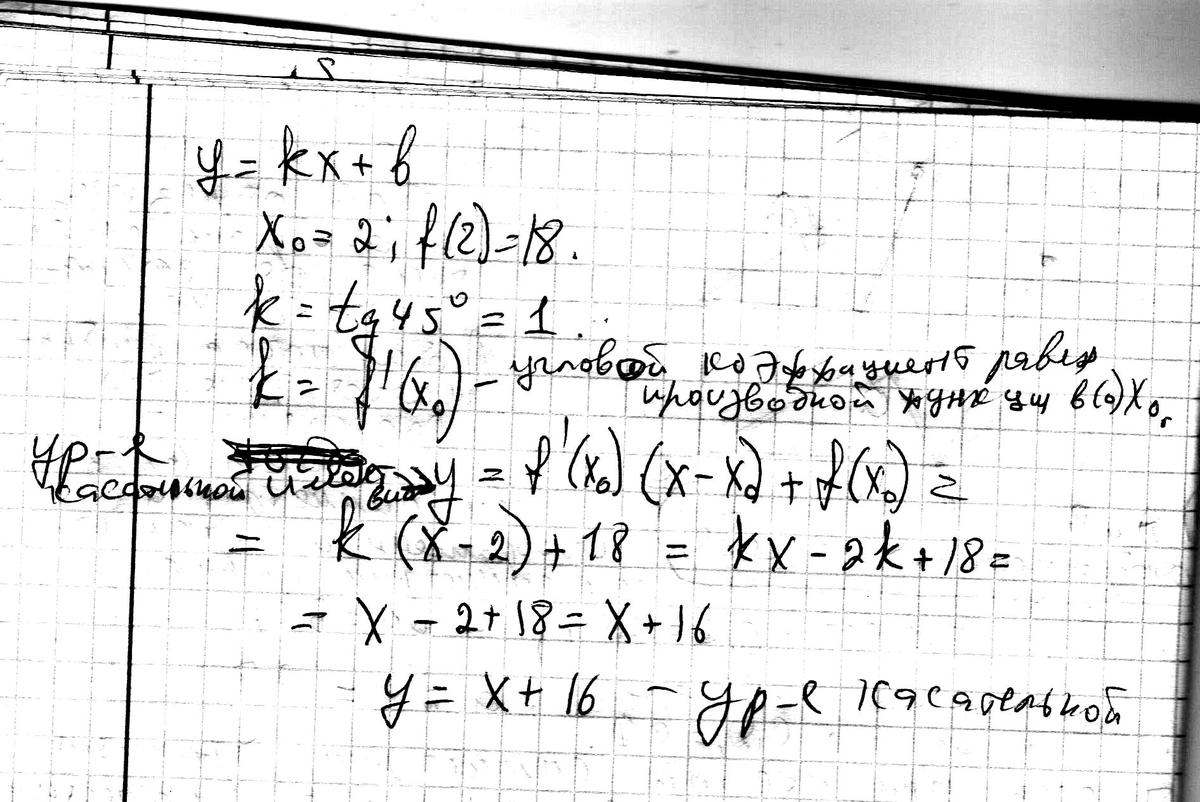 y = kx + b
x₀ = 2; f(2) = 18.
k = tg 45° = 1.
k = f'(x₀) – угловой коэффициент равен
производной функции в (·) x₀.
ур-е
касательной имеет вид → y = f'(x₀)(x – x₀) + f(x₀) =
= k(x – 2) + 18 = kx – 2k + 18 =
= x – 2 + 18 = x + 16
y = x + 16 – ур-е касательной